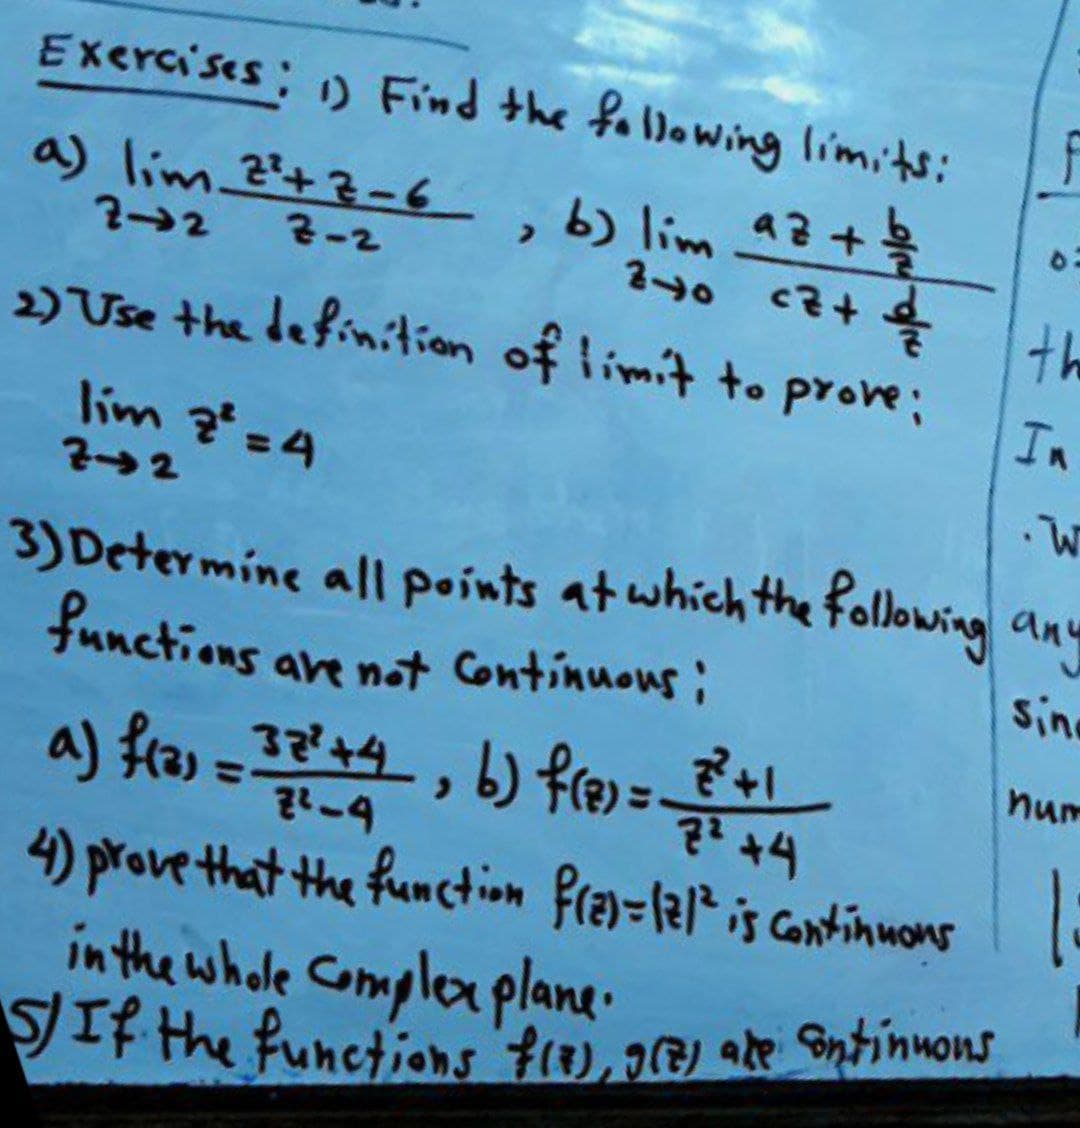 Exercises: 1) Find the following limits:
a) lim z→2 (z²+z-6)/(z-2) , b) lim z→0 (az + b/z)/(cz + d/z)
2) Use the definition of limit to prove:
lim z→2 z² = 4
3) Determine all points at which the following
functions are not Continuous:
a) f(z) = (3z²+4)/(z²-4) , b) f(z) = (z²+1)/(z²+4)
4) prove that the function f(z)=|z|² is Continuous
in the whole Complex plane.
5) If the functions f(z), g(z) are Continuous
th
In
. W
any
num